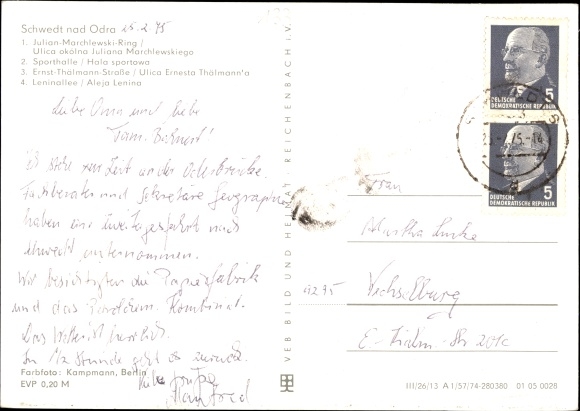 Schwedt nad Odra 25.2.75
1. Julian-Marchlewski-Ring /
Ulica okólna Juliana Marchlewskiego
2. Sporthalle / Hala sportowa
3. Ernst-Thälmann-Straße / Ulica Ernesta Thälmann'a
4. Leninallee / Aleja Lenina
Liebe Oma und liebe
Fam.
zur Zeit an der
Fachberater und Sekretäre Geographie
haben eine nach
Schwedt unternommen.
Wir besichtigten die Papierfabrik
und das Kombinat.
Das Wetter ist herrlich.
In 1/2 Stunde geht es zurück.
Manfred
Farbfoto: Kampmann, Berlin
EVP 0,20 M
VEB BILD UND HEIMAT REICHENBACH I. V.
DEUTSCHE
DEMOKRATISCHE REPUBLIK
5
DEUTSCHE
DEMOKRATISCHE REPUBLIK
5
Frau
Martha
9295 Wechselburg
E-Thälm.-Str 201c
III/26/13 A 1/57/74-280380 01 05 0028